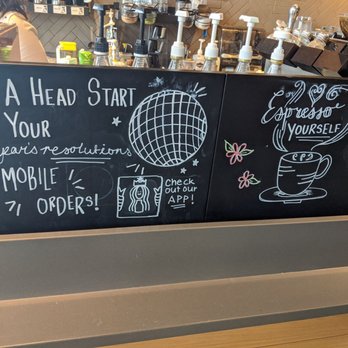 A HEAD START
YOUR
year's resolutions
MOBILE
ORDERS!
Check
out our
APP!
Espresso
YOURSELF